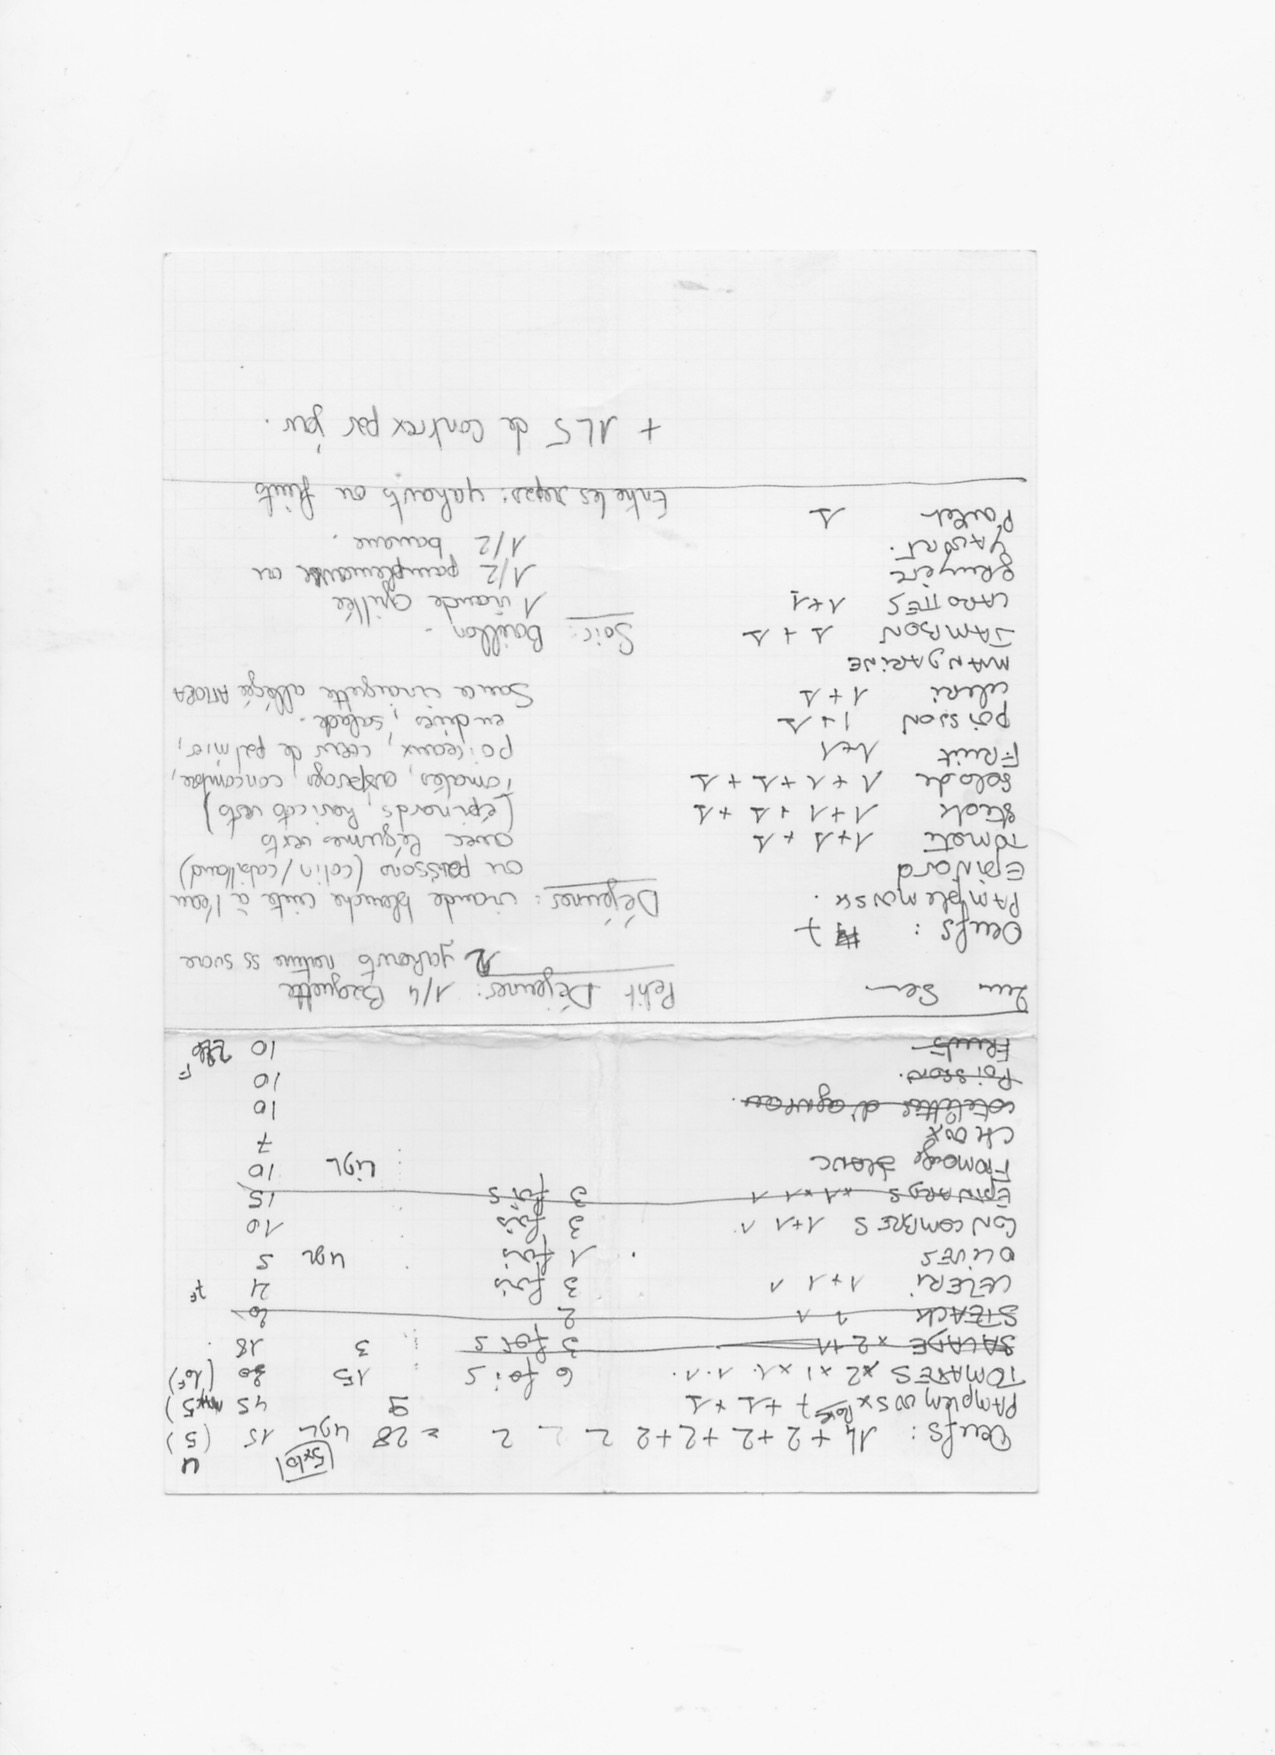 4
5x10
Oeufs : 14 + 2 + 2 + 2 + 2 2 2 2 = 28 15 (5)
PAMPLEMOUSX 7 + 1 + 1 9 45
TOMATES x2 x1 x1. 1. 1. 6 fois 15 (10F)
SALADE x 2 11 3 fois 3 18
STEACK 1 1 2
CELERI 1+1 1 3 fois 21 F
OLIVES 1 fois 5
CONCOMBRES 1+1 1. 3 fois 10
EPINARDS x1x1 1 3 fois 15
FROMAGE BLANC 10
CHOUX 7
cotelettes d'agneau. 10
Poisson. 10 F
FRUITS 10
2em Sem
Oeufs : 7
PAMplemousse.
EpiNard
Tomate 1+1 +1
Steak 1+1 +1 +1
Salade 1+1+1+1
Fruit 1+1
poisson 1+1
celeri 1+1
MARgARiNE
JAMBON 1 + 1
CAROTTES 1+1
gruyère
YAourt.
Poulet 1
Petit Déjeuner : 1/4 Baguette
2 yahourts nature ss sucre
Déjeuner : viande blanche cuite à l'eau
ou poissons (colin / cabillaud)
avec légumes verts
(épinards, haricots verts)
tomates, asperges, concombre,
poireaux, coeurs de palmier,
endives, salade.
Sauce vinaigrette allégée AMORA
Soir : Bouillon.
1 viande grillée
1/2 pamplemousse ou
1/2 banane.
Entre les repas : yahourts ou fruits
+ 1L5 de contrex par jour.